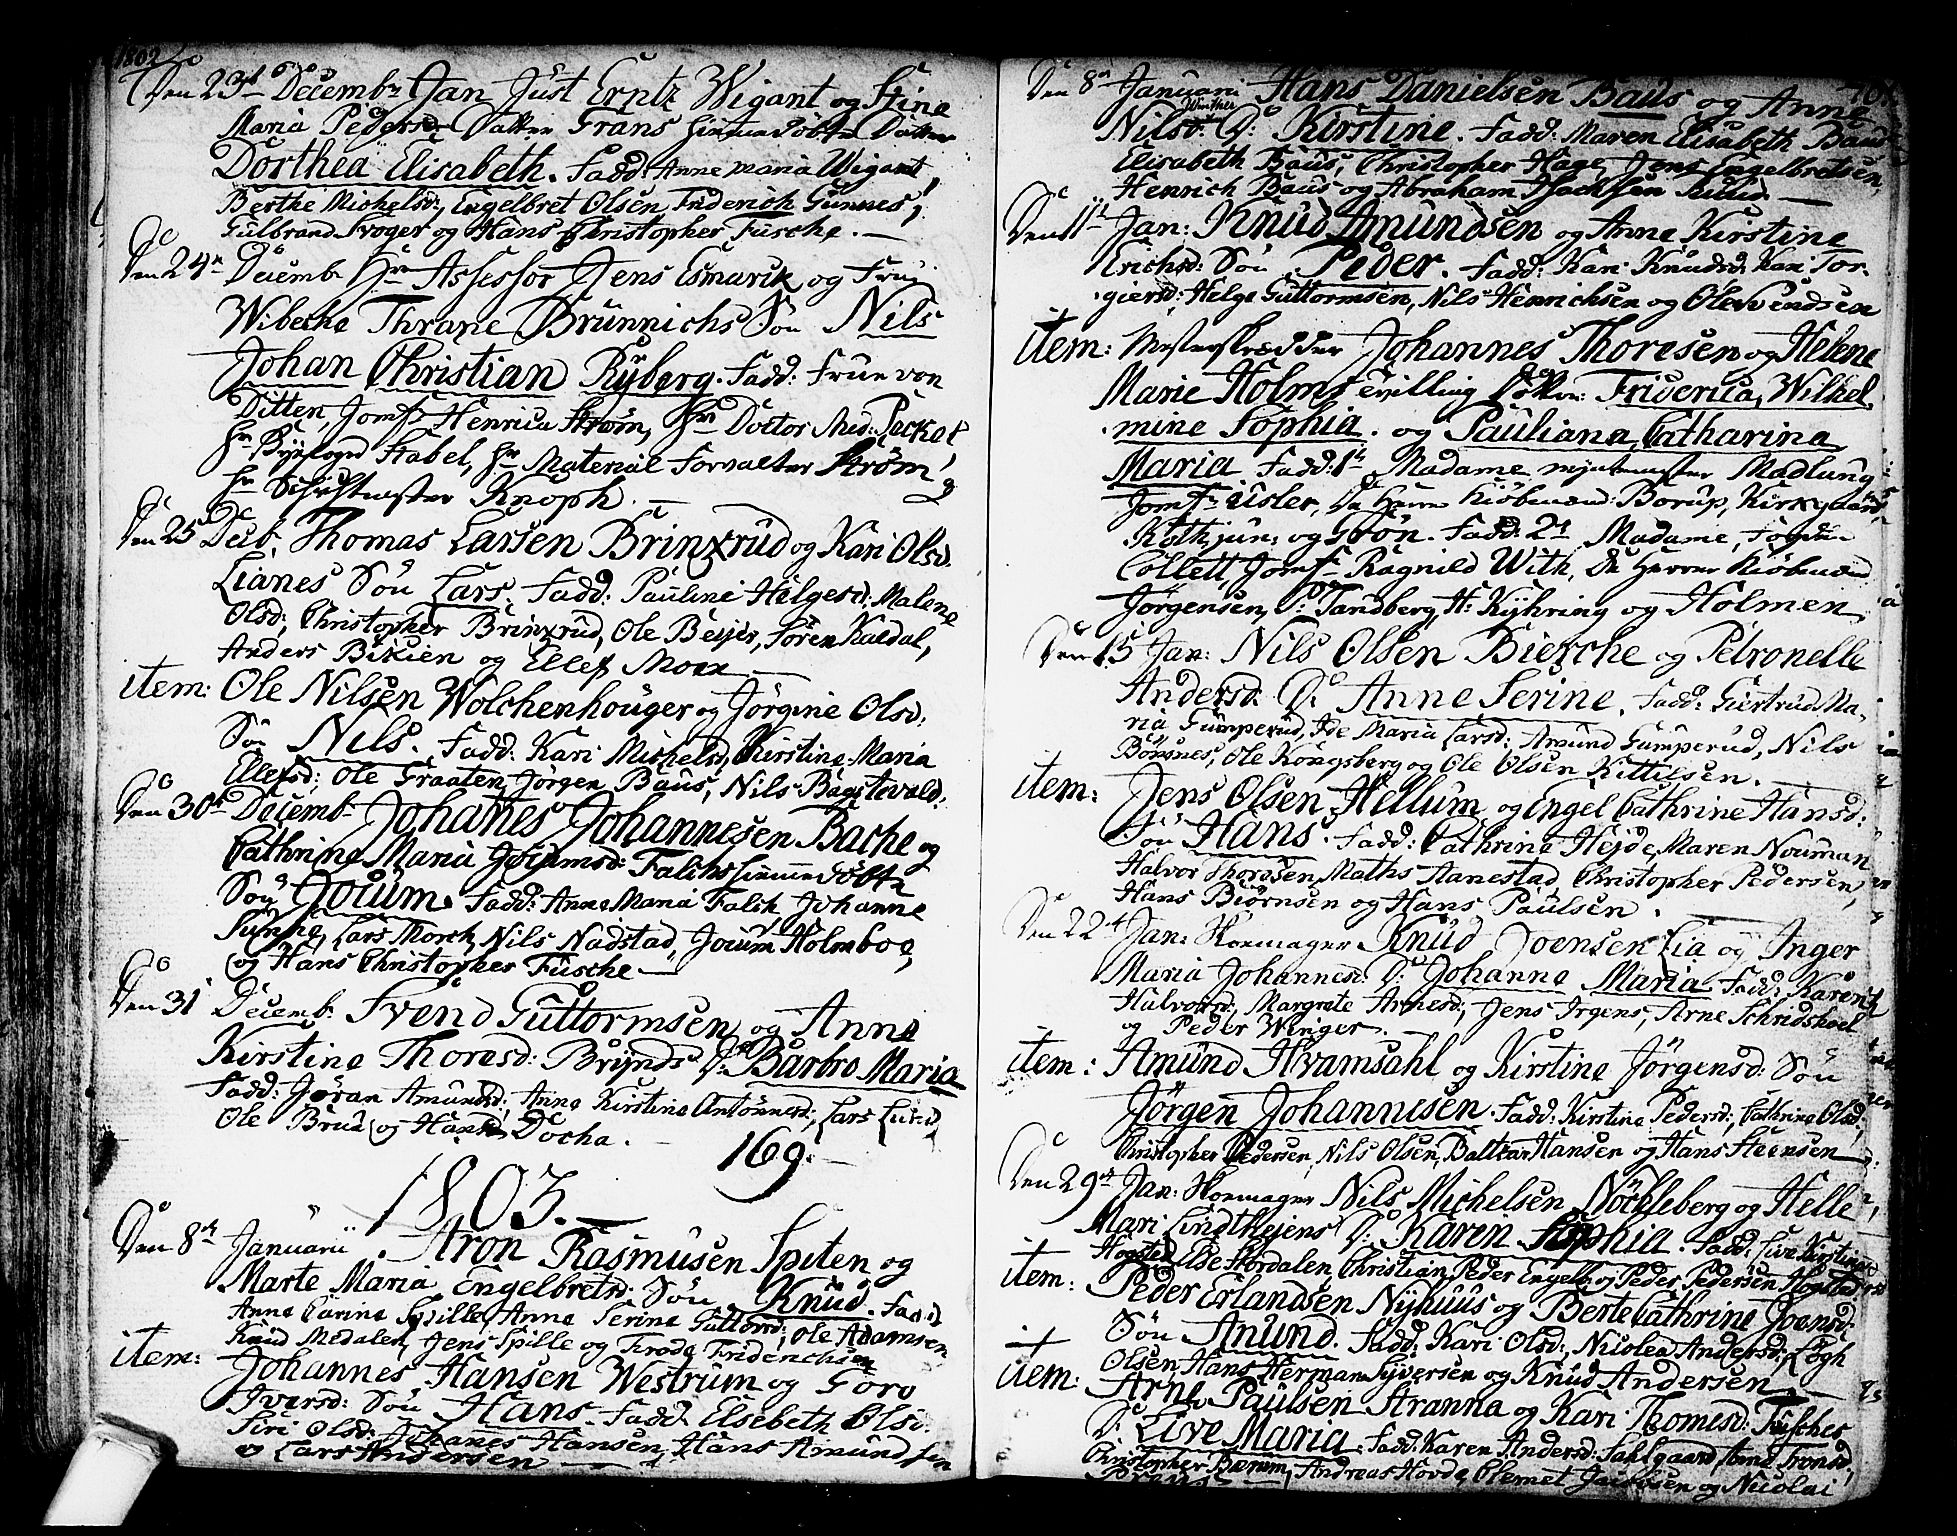 1802
Den 23de Decembr Jan Just Erntz Wigant og Stine
Maria Pedersd: Datter Grans hiemmedöbte Datter
Dorthea Elisabeth. Fadd: Anne Maria Wigant,
Berthe Michelsd:, Engelbret Olsen, Friderich Gunnes,
Gulbrand Svoger og Hans Christopher Fusche.
Den 24de Decemb. Hr Assessor Jens Esmark og Frue
Wibeche Thrane Brünnichs Sön Nils
Johan Christian Ryberg. Fadd: Frue von
Ditten, Jomfr Henrica Strøm, Hr Doctor Med: Peckel,
Hr Byefoged Stabel, Hr Material Forvalter Strøm og
Hr Schichtmester Knoph.
Den 25 Decb. Thomas Larsen Brinxrud og Kari Olsd.
Lianes Sön Lars. Fadd: Pauline Helgesd: Malene
Olsd:, Christopher Brinxrud, Ole Beijer, Søren Kaldal,
Anders Bikien og Ellef Moen
item: Ole Nilsen Wolchenhouger og Jörgine Olsd:
Sön Nils. Fadd: Kari Michelsd, Kierstine Maria
Ellefsd; Ole Graaten, Jörgen Baus, Nils Bagstevold.
Den 30te Decemb. Johanes Johannesen Bache og
Cathrine Maria Joachumsd: Falchs hiemmedöbte
Sön Jocum. Fadd: Anne Maria Falch, Johanne
Sunne, Lars Morch, Nils Nadstad, Jocum Holmboe,
og Hans Christopher Fusche
Den 31 Decemb. Svend Guttormsen og Anne
Kirstine Thoresd: Brynds D: Barbro Maria
Fadd: Jöran Amundsd; Anne Kirstine Antonnesd; Lars
Ole Brud og Hans Docha.
169.
1803.
Den 8de Januarii Aron Rasmusen Spiten og
Marte Maria Engelbretsd. Sön Knud. Fadd
Anne Carine Spille, Anne Serine Guttormsd; Ole Adamsen
Knud Medalen, Jens Spille og Frode Friderichsen
item: Johannes Hansen Westrum og Goro
Iversd: Sön Hans. Fadd Elsebeth Olsd:
Siri Olsd: Johanes Hansen, Hans Amundsen
og Lars Andersen
Den 8de Januari Hans Danielsen Baus og Anne
Winther
Nilsd: D: Kirstine. Fadd: Maren Elisabeth Baus
Elisabeth Baus, Christopher Hage, Jens Engelbretsen,
Henrich Baus og Abraham Isachsen
Den 11te Jan: Knud Amundsen og Anne Kirstine
Erichsd: Sön Peder. Fadd: Kari Knudsd: Kari Tor-
giersd: Helge Guttormsen, Nils Henrichsen og Ole Svendsen
item: Mesterskrædder Johannes Thoresen og Helene
Marie Holms tvilling Döttre: Friderica, Wilhel
mine Sophia. og Pauliana, Catharina
Maria Fadd: 1te Madame myntmester Madlung
Jomfr Usler, De Herrer Kiöbmænd: Borup, Kirkgaard,
Roth jun: og Grøn. Fadd: 2den Madame, Fogdn
Collett, Jomfr Ragnild With, De Herrer Kiöbmænd
Jørgensen, P: Tandberg, H: Kyhring og Holmen
Den 15 Jan: Nils Olsen Bierche og Petronelle
Andersd: D: Anne Serine. Fadd: Giertrud Ma-
ria Gumperud, Ide Maria Larsd: Amund Gumperud, Nils
Bönsnes, Ole Kongsberg og Ole Olsen Kittilsen.
item: Jens Olsen Hellum og Engel Cathrine Hansd:
Sön Hans. Fadd: Cathrine Hejde, Maren Nouman
Halvor Thoresen, Maths Aanestad, Christopher Pedersen,
Hans Biörnsen og Hans Paulsen.
Den 22de Jan: Skomager Knud Joensen Lia og Inger
Maria Johannesd: D: Johanne Maria Fadd: Karen
Halvorsd:, Margrete Arnesd:, Jens Irgens, Arne Schridshoel
og Peder Winger.
item: Amund Hvamsahl og Kirstine Jörgensd: Sön
Jörgen Johannesen. Fadd: Kirstine Pedersd:, Cathrine Olsd;
Christopher Pedersen, Nils Olsen, Baltzar Hansen og Hans Steensen
Den 29de Jan: Skomager Nils Michelsen Nöchleberg og Helle
Mari Lindthejens D: Karen Sophia. Fadd: Live Kirstine
Hogsted, Else Skordalen, Christian, Peder Engell og Peder Pedersen Hogstad
item: Peder Erlandsen Nyhuus og Berte Cathrine Joensd:
Sön Anund. Fadd: Kari Olsd:, Nicolea Andersd: Logh
Olsen, Hans Herman Syversen og Knud Andersen
item: Arne Paulsen Stranna og Kari Thomesd: Fusches
D: Live Maria. Fadd: Karen Andersd: Sahlgaard, Anne Tronsd,
Christopher Bærøm, Andreas Hovde, Clemet Jacobsen og Nicolai